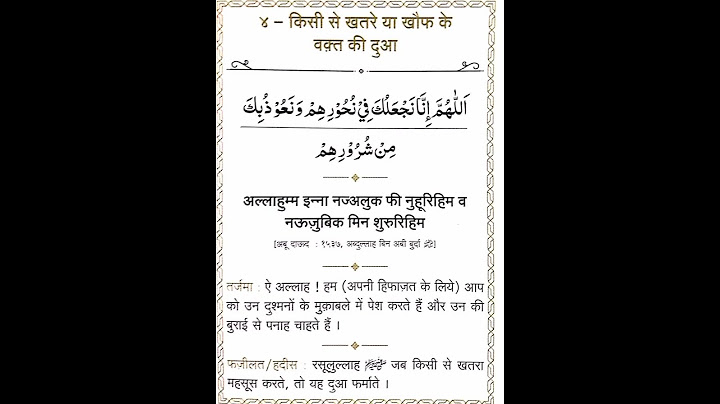 ४ – किसी से खतरे या खौफ के
वक़्त की दुआ
اَللّٰهُمَّ اِنَّا نَجْعَلُكَ فِيْ نُحُوْرِهِمْ وَنَعُوْذُبِكَ
مِنْ شُرُوْرِهِمْ
अल्लाहुम्म इन्ना नज्अलुक फी नुहूरिहिम व
नऊज़ुबिक मिन शुरुरिहिम
[अबू दाऊद : १५३७, अब्दुल्लाह बिन अबी बुर्दा ؓ]
तर्जमा : ऐ अल्लाह ! हम (अपनी हिफाज़त के लिये) आप
को उन दुश्मनों के मुक़ाबले में पेश करते हैं और उन की
बुराई से पनाह चाहते हैं ।
फज़ीलत/हदीस : रसूलुल्लाह ﷺ जब किसी से खतरा
महसूस करते, तो यह दुआ फर्माते ।